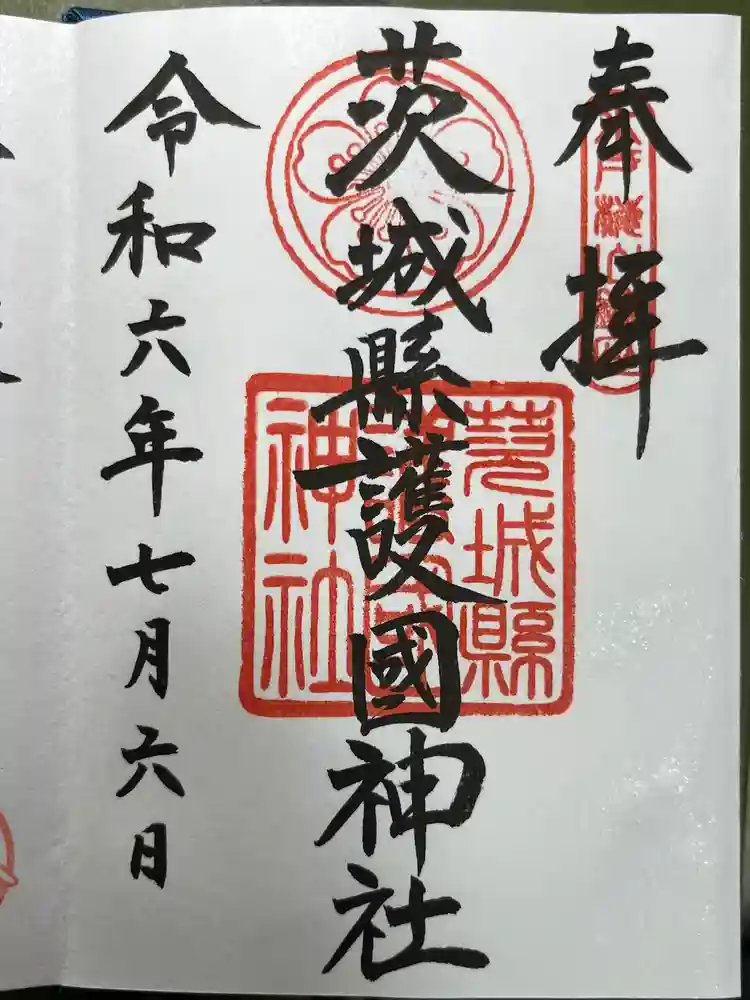 奉拝
茨城縣護國神社
茨城縣護國神社
令和六年七月六日